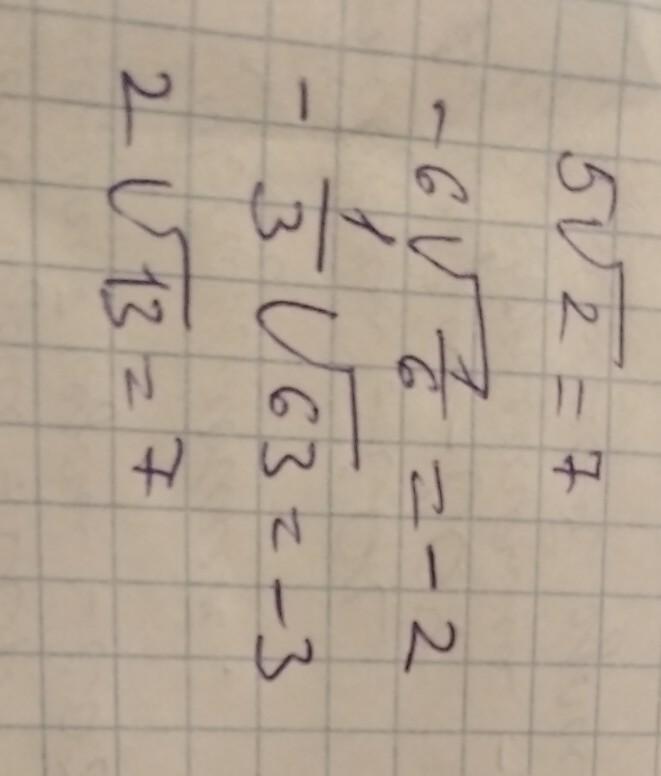 5√2 = 7
-6√1/6 = -2
-1/3√63 = -3
2√13 = 7